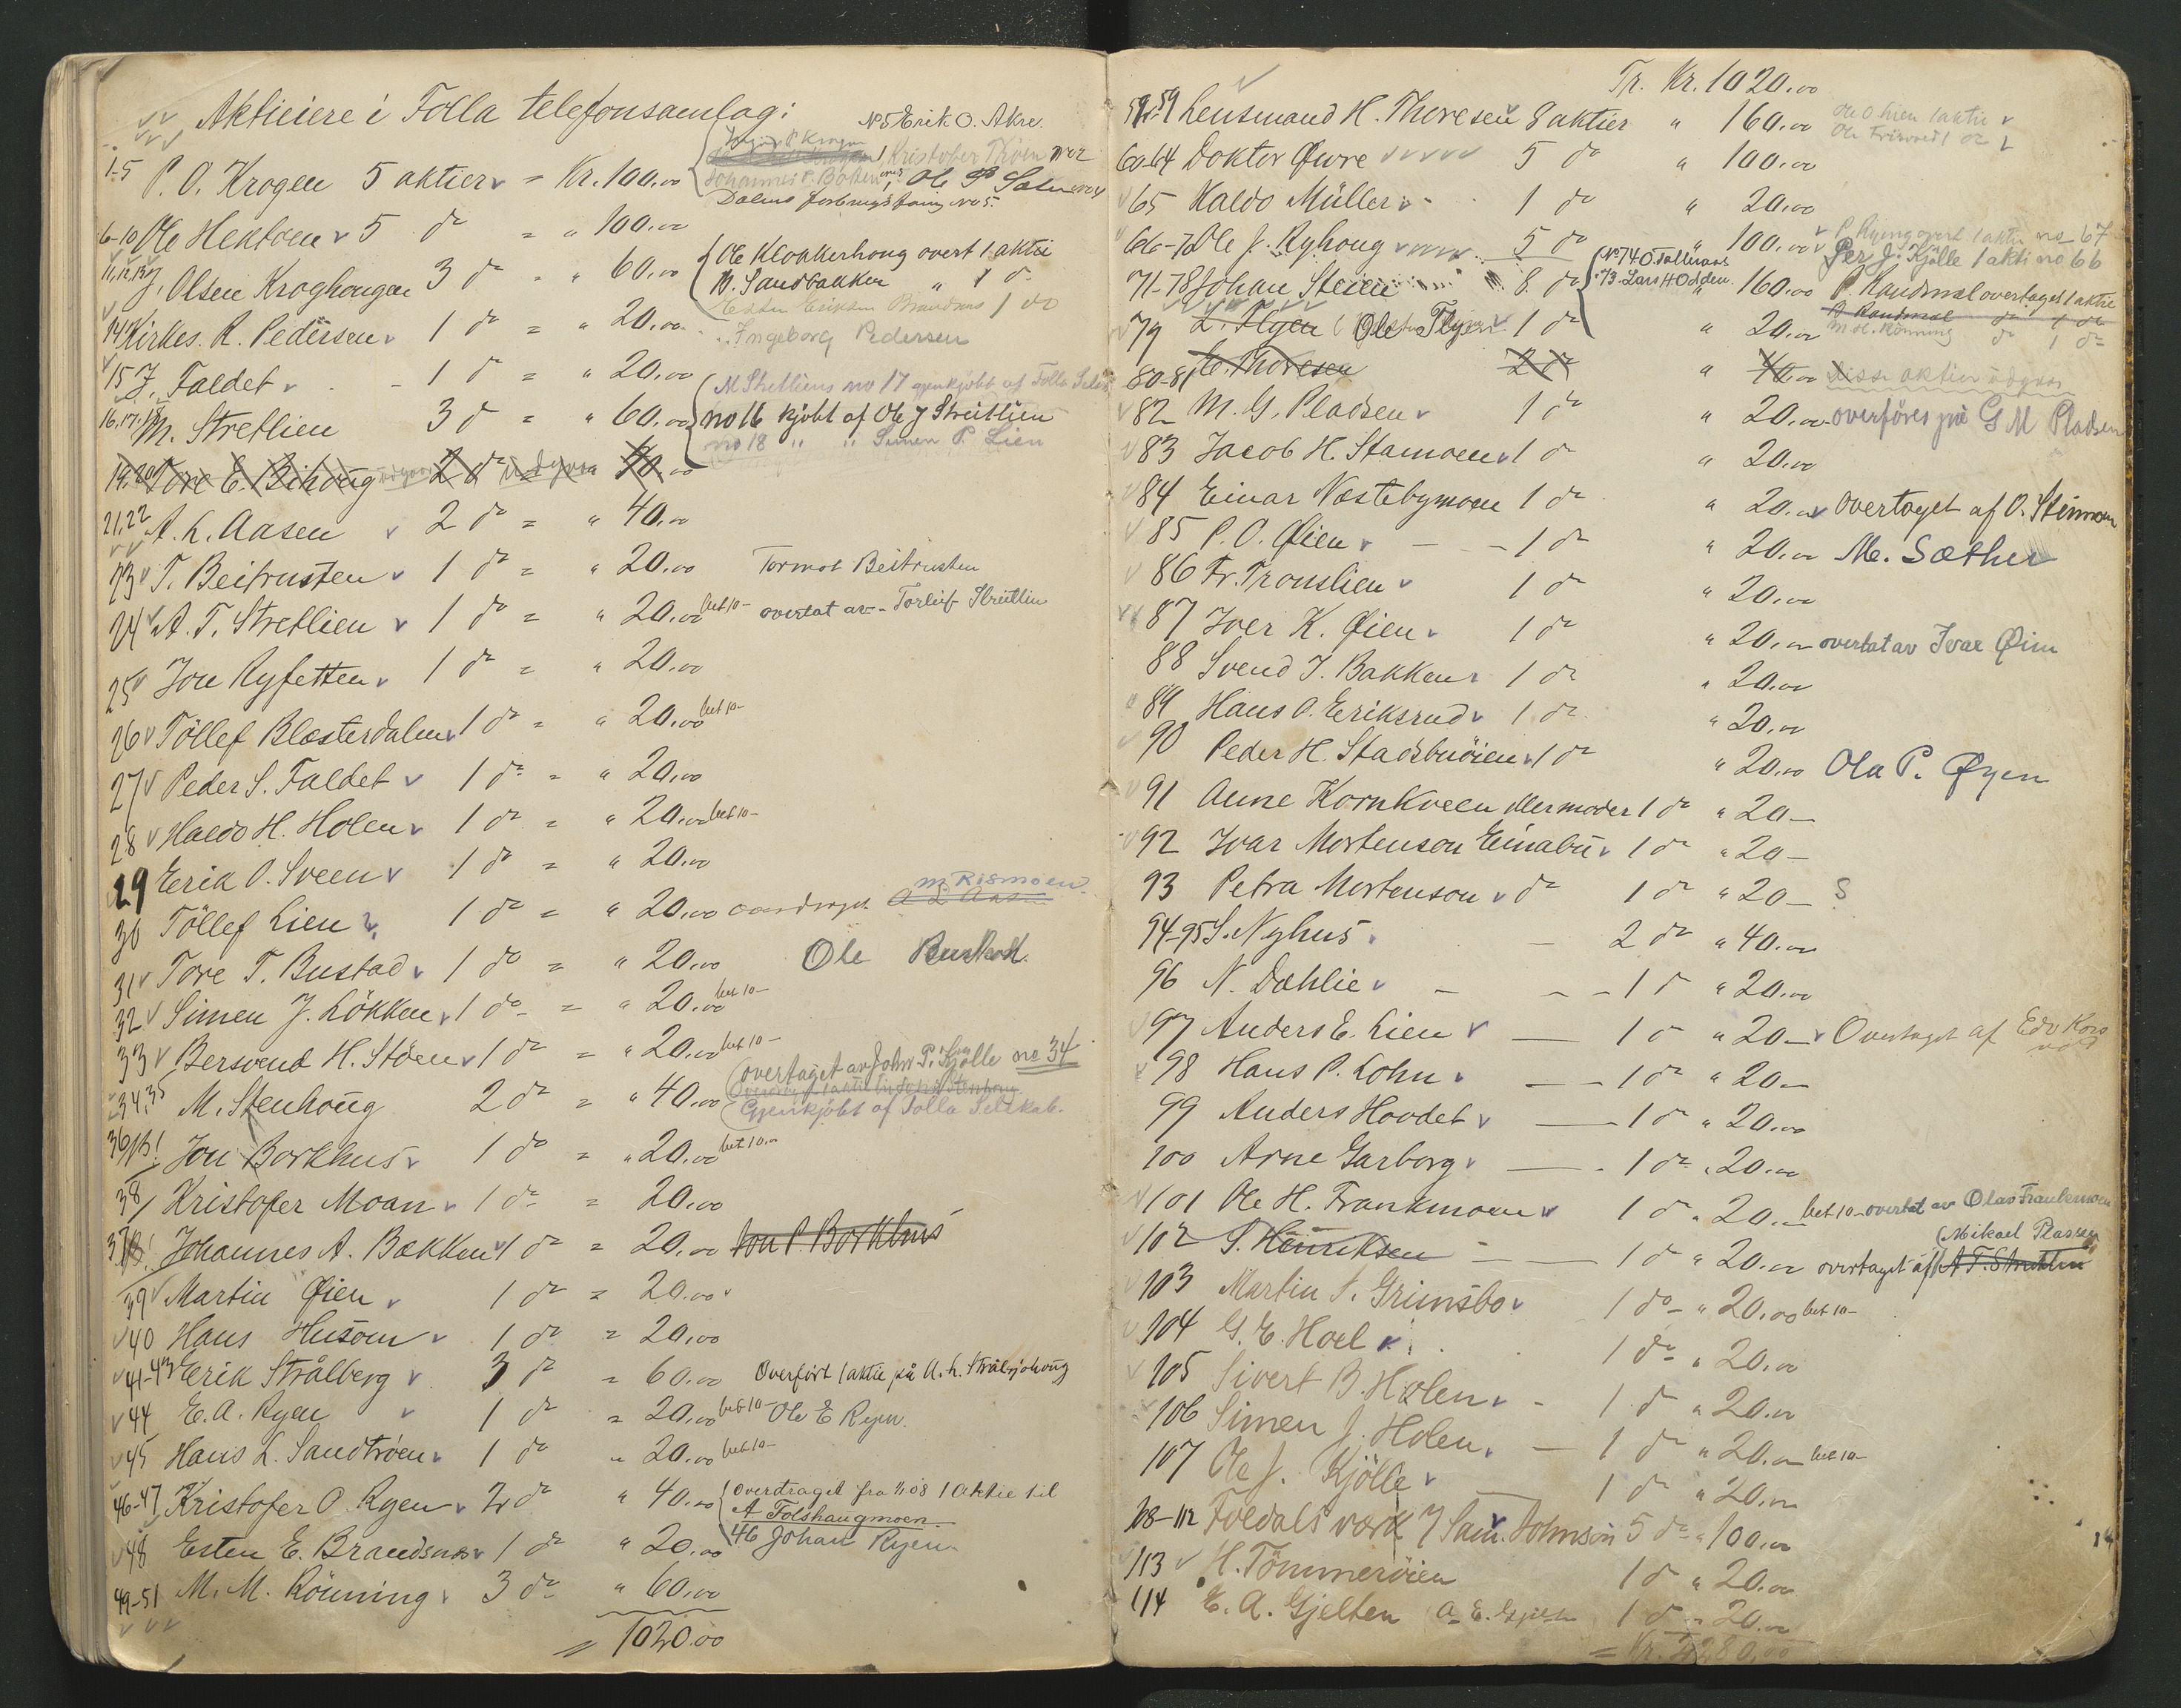 Aktieiere i Folla telefonsamlag:
No 5 Erik O. Akre.
Kristofer Thoen no 2
1-5 P. O. Krogen 5 aktier = Kr. 100.00
Johannes P. Ole P
Dalens forbrugsforening No 5.
6-10 Ole Hektoen 5 do = " 100.00
11,12,13 J. Olsen Kroghougen 3 do = " 60.00 Ole Klokkerhoug overt 1 aktie
M. Sandbakken " 1 d.
Esten Eriksen Brandsnes 1 do
14 Kirkes. R. Pedersen 1 do = " 20.00 Ingeborg Pedersen
15 J. Faldet - 1 d = " 20.00
M Stretliens no 17 gjenkjöbt af Folla Selsk
16,17,18 M. Stretlien 3 d = " 60.00 no 16 kjöbt af Ole J Streitlien
no 18 " " Simen P. Lien
19,20 Tore E. Bihoug udgaar 2 do udgaar 40.00
21,22 A. L. Aasen 2 do = " 40.00
23 T. Beitrusten 1 do = " 20.00 Tormot Beitrusten
24 A. T. Stretlien 1 do = " 20.00 bet 10- overtat av Torleif Streitlien
25 Jon Ryfetten 1 do = " 20.00
26 Töllef Blæsterdalen 1 do = " 20.00 bet 10-
27 Peder S. Faldet 1 do = " 20.00
28 Haldo H. Holen 1 do = " 20.00 bet 10-
29 Erik O. Sveen 1 do = " 20.00
M. Rismoen
30 Töllef Lien 1 do = " 20.00 A L Aasen
31 Tore T. Bustad 1 do = " 20.00 Ole Bustad.
32 Simen J. Lökken 1 do = " 20.00 bet 10-
33 Bersvend H. Stöen 1 do = " 20.00 bet 10-
overtaget av John P. Kjölle no 34
34,35 M. Stenhoug 2 do = " 40.00
Gjenkjöbt af Folla Selskab.
36 Jon Borkhus 1 do = " 20.00 bet 10.-
38 Kristofer Moan 1 do = 20.00
37 Johannes A. Bakken 1 do = 20.00 Jon P. Borkhus
39 Martin Øien 1 do = 20.00
40 Hans Husom 1 do = 20.00
41-43 Erik Strålberg 3 do = 60.00 Overfört 1 aktie på A. L. Strålsjohoug
44 E. A. Ryen 1 do = 20.00 bet 10- Ole E Ryen.
45 Hans L. Sandtröen 1 do " 20.00 bet 10-
46-47 Kristofer O. Ryen 2 do " 40.00 Overdraget fra 1/1 08 1 Aktie til
A Folshaugmoen.
48 Esten E. Brandsnes 1 do " 20.00 46 Johan Ryen
49-51 M. M. Rönning 3 do " 60.00
= 1020.00
Tr. Kr. 1020.00
59 Lensmand H. Thoresen 8 aktier " 160.00 Ole O Lien 1 aktie
60-64 Doktor Øwre 5 do " 100.00
65 Haldo Müller 1 do " 20.00
66-70 Ole J. Ryhoug 5 do " 100.00 P. Ryeng overt 1 aktie no 67
Per J. Kjölle 1 akti no 66
71-78 Johan Steien 8 do No 74 O. Follmoas
73. Lars H Odden " 160.00 P. Randmæl overtaget 1 aktie
79 L. Flyen (Ole Flyen 1 do " 20.00
M. M. Rönning do 1 do
80-81 O. Thoresen 2 do " 40.00 disse aktier udgaar
82 M. G. Pladsen 1 do " 20.00 overföres på G M Pladsen
83 Jacob H. Stamoen 1 d " 20.00
84 Einar Næstebymoen 1 do " 20.00 Overtaget af O. Steimoen
85 P. O. Øien - - 1 do " 20.00 M. Sæther
86 Fr. Tronslien 1 do " 20.00
87 Iver K. Øien 1 do " 20.00 overtat av Ivar Øien
88 Svend J. Bakken 1 do " 20.00
89 Hans O. Eriksrud 1 do " 20.00
90 Peder H. Stadsbuöien 1 do " 20.00 Ola P. Øyen
91 Anne Kornkveen Mermoder 1 do " 20-
92 Ivar Mortenson Einabu 1 do " 20-
93 Petra Mortenson do 1 do " 20- S
94-95 S. Nyhus - 2 do " 40.00
96 N. Dæhlie - - - 1 d " 20.00
97 Anders E. Lien - 1 d " 20- Overtaget af Edv Kors
vold
98 Hans P. Lohn - 1 do " 20-
99 Anders Hovdet - 1 d " 20.00
100 Arne Garborg - 1 do " 20.00
101 Ole H. Frankmoen 1 d " 20.- bet 10- overtat av Olav Frankmoen
(Mikael Plassen
102 S. Henriksen - 1 d " 20.00 overtaget af A T. Stretlien
103 Martin S. Grimsbo 1 do " 20.00 bet 10-
104 G. E. Hoel 1 do " 20.00
105 Sivert B. Holen - 1 d " 20.00
106 Simen J. Holen - 1 d " 20.00 bet 10-
107 Ole J. Kjölle - 1 d " 20.00
108-112 Foldals værk / Sam. Johnson 5 do " 100.00
113 H. Tömmeröien 1 d " 20.00
114 E. A. Gjelten A. E. Gjelten 1 d " 20.00